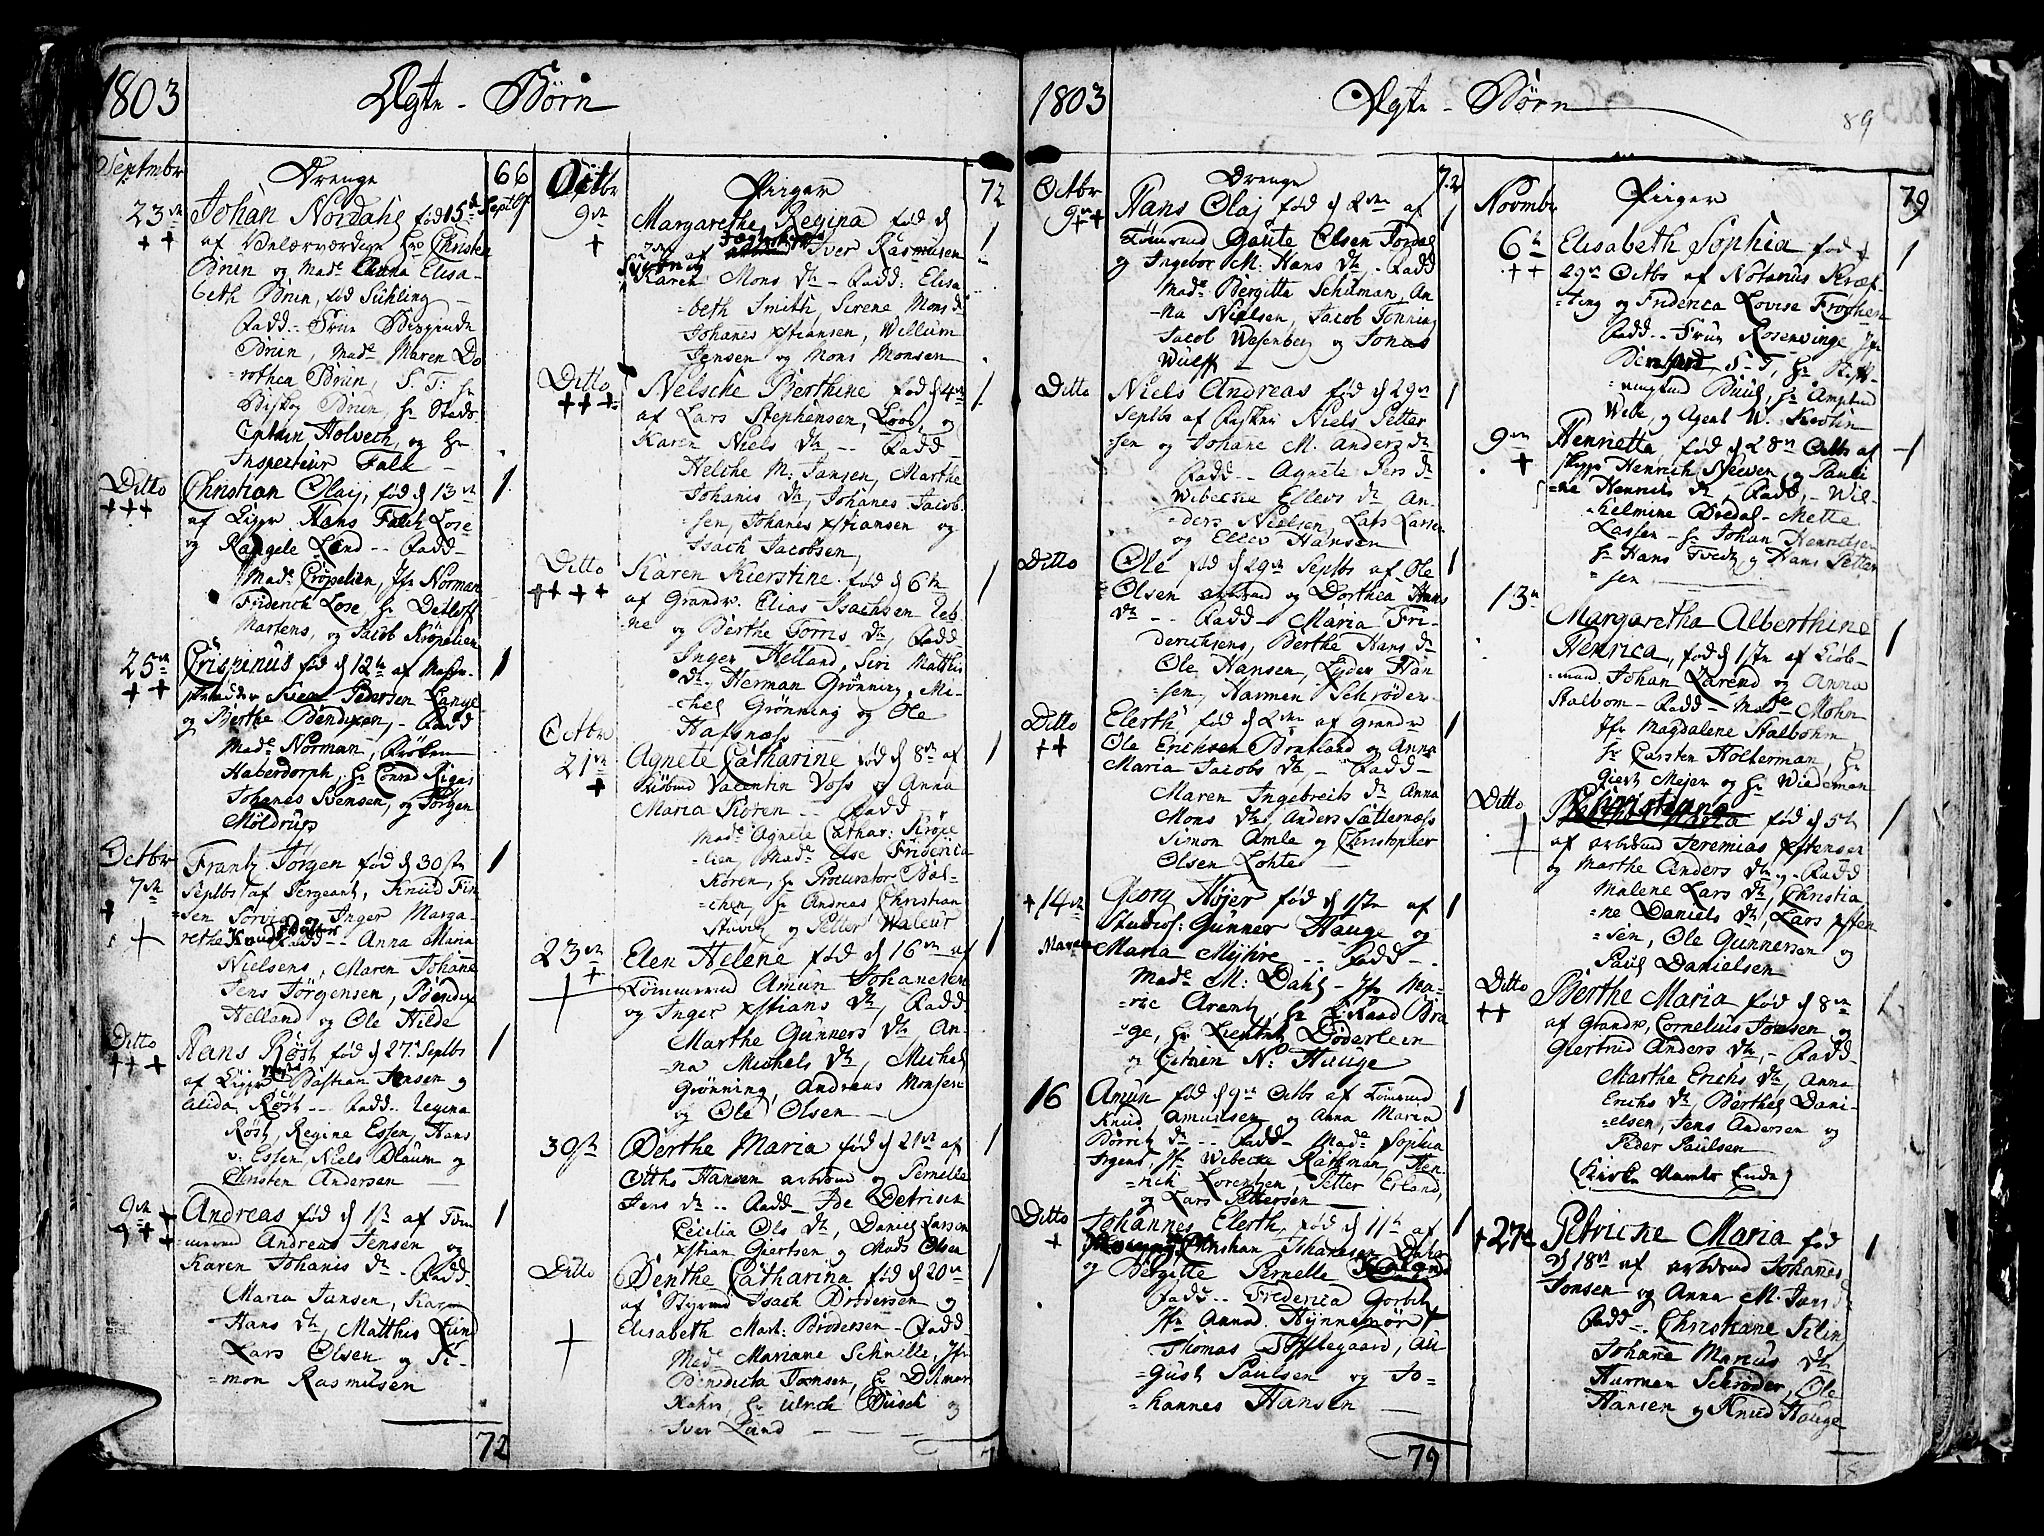 1803
Ægte - Børn
Septmbr
Drenge
66
23de
Johan Nordahl fød 15de Septbr
af Velærværdige Hr Christen
Brun og Made Anna Elisa-
beth Brun, fød Sühling
Fadd.. Frue Bispinde
Brun, Made Maren Do
rothea Brun, S. T: Hr
Biskop Brun, Hr Stads
Captain Holveck, og Hr
Inspecteur Falk
Ditto
Christian Olaij, fød d 13de
1
af Ligger Hans Falck Lose
og Rangele Lind -- Fadd-
Made Cröpelien, Jfr Norman
Friderich Lose, Hr Detlof
Martens, og Jacob Kröpelien
25de
Crispinus fød d 12te af
1
Svend Pedersen Lange
og Berthe Bendixen, - Fadd
Made Norman, Frøken
Haberdorph, Hr Conrad Rigas
Johanes Svensen, og Jörgen
Möldrup
Octbr
7de
Frantz Jörgen fød d 30te
1
Septbr af Sergeant, Knud Fin
sen Sorvig og Inger Marga
rethe Knudsdatter Fadd -- Anna Maria
Nielsens, Maren Johanne
Jens Jörgensen, Bendix
Helland og Ole Hilde
Ditto
Hans Röst fød d 27de Septbr
1
af Ligger Bastian Jensen og
Alida Röst -- Fadd.. Regina
Röst, Regine Essen, Hans
v: Essen, Niels Blaum og
Christen Andersen
9de
Andreas fød d 1te af Töm
1
mermd Andreas Jensen og
Karen Johanis dtr - Fadd-
Maria Jansen, Karen
Hans dtr, Matthis Lund
Lars Olsen og Si-
mon Rasmusen
72
Octbr
Piger
72
9de
Margarethe Regina fød d
1
7de af Iver Rasmusen
Karen Mons dtr - Fadd: Elisa
beth Smith, Sirene Mons dr
Johanes Xstiansen, Willum
Jensen og Mons Monsen
Ditto
Nelsche Berthine fød d 4de
1
af Lars Stephensen, Loos, og
Karen Niels dtr -- Fadd-
Helche M: Jansen, Marthe
Johanis dtr, Johanes Jacob
sen, Johanes Xstiansen og
Isach Jacobsen
Ditto
Karen Kierstine fød d 6te
1
af Grandv. Elias Isachsen
og Berthe Torris dtr, Fadd
Inger Helland, Siri Matthis
dtr, Herman Grönning, Mi-
chel Grönning og Ole
Hafsnæss
Octbr
21de
Agnete Catharine fød d 8de af
1
Valentin Voss og Anna
Maria Koren -- Fadd
Made Agnete Cathar: Kröpe
lien, Made Else Friderica
Koren, Hr Procurator Bal-
chen, Hr Andreas Christian
og Petter Waleur
23de
Elen Helene fød d 16de af
1
Tömmermd Amun Johanesen
og Inger Xstians dtr, Fadd
Marthe Gunners dtr An-
na Michels dtr, Michel
Grönning, Andreas Monsen
og Ole Olsen
30te
Berthe Maria fød d 21de af
1
Otths Hansen arbmd og Pernelle
Jens dr .. Fadd De Detrisen
Cecilia Ols dtr, Daniel Larsen
Xstian Giertsen og Mads Olsen
Ditto
Benthe Catharina fød d 20de
1
af Styrmd Isach Brodersen og
Elisabeth Mart: Brodersen - Fadd-
Made Mariane Schnille, Jfr
Benedicta Jansen, Hr Ditmar
Kahrs, Hr Ulrich Busch og
Iver Lund
1803
Ægte - Børn
89
Octbr
Drenge
72
9de
Hans Olaj fød d 2den af
1
Tömermd Gaute Olsen Jordal
og Ingebor M. Hans dtr, - Fadd
Made Bergitta Schuman, An
na Nielsen, Jacob Jonning
Jacob Wesenberg og Jonas
Wulff
Ditto
Niels Andreas fød d 29de
1
Septbr af Niels Petter
sen og Johane M. Anders dtr
Fadd -- Agnete Pers dr
Wibecke Ellers dr An-
ders Nielsen, Lars Larsen
og Eller Hansen
Ditto
Ole fød d 29de Septbr af Ole
1
Olsen arbmd og Dorthea Hans
dtr -- Fadd - Maria Fri-
derichsens, Berthe Hans dr
Ole Hansen, Lyder Han
sen, Harmen Schröder
Ditto
Elerth fød d 2den af Grandv
1
Ole Erichsen Brntland og Anna
Maria Jacobs dtr, - Fadd-
Maren Ingebreits dr Anna
Mons dtr, Anders Sætternæss
Simon Amle og Christopher
Olsen Lohte
14de
Georg Höjer fød d 1te af
1
Studios: Gunner Hauge og
Maria Mijhre -- Fadd-
Made M: Dahl - Jfr Ma-
rie Arentz, Hr Bra
ge, Hr Lieutnt Döderlein
og Citoien N: Hauge
16
Amun fød d 9de Octbr af Tömermd
1
Knud Amundsen og Anna Maria
Börrits dr -- Fadd - Made Sophia
Irgens Jfr Wibecke Rathman, Hen
rich Lorentzen, Petter Erland,
og Lars Pettersen
Ditto
Johannes Elerth fød d 11te af
1
Christian Johanesen Dahl
og Bergitte Pernelle
Fadd -- Frederica Gorbitz
Jfr Annad. Hynnemörd
Thomas Tofftegaard, Au
gust Paulsen og Jo-
hannes Hansen
79
Novmbr
Piger
79
6te
Elisabeth Sophia fød d
1
29de Octbr af Notarius Kræf-
ting og Friderica Lovise Froghen
Fadd -- Frue Rosenvinge, Jfr
S. T, Hr Stift-
Bull, Hr Amptmd
Weile, og Agent W. Konow
9de
Henrietta, fød d 28de Octbr af
1
Skipp: Henrich Neeven, og Pauli
ne Henrichs dr, Fadd, - Wil-
helmine Bredal - Mette
Lassen - Hr Johan Henricksen
Hr Hans Tvedt, og Hans Petter
sen
13de
Margaretha Alberthine
1
Henrica, fød d 1te af Kiöb-
mand Johan Zarend og Anna
Stalbom - Fadd - Made Mohn
Jfr Magdalene Stalbohm
Hr Carsten Holterman, Hr
Giert Mejer og Hr Wiedeman
Ditto
Christiana fød d 5te
1
af arbmd Jeremias Xstensen
og Marthe Anders dtr - Fadd
Malene Lars dtr, Christia,
ne Daniels dtr, Lars Xsten
sen, Ole Gunnersen og
Paul Danielsen
Ditto
Berthe Maria fød d 8de
1
af Grandv, Cornelius Jonsen og
Giertrud Anders dtr, - Fadd-
Marthe Erichs dtr, Anna
Erichs dtr, Berthel Dani-
elsen, Jens Andersen og
Peder Paulsen
(Kirke Aarets Ende)
27de
Petricke Maria fød
1
d 18de af arbmd Johanes
Jonsen og Anna M. Jans dr
Fadd -- Christiane Silin
Johane Marius dtr
Harmen Schröder, Ole
Hansen og Knud Hauge